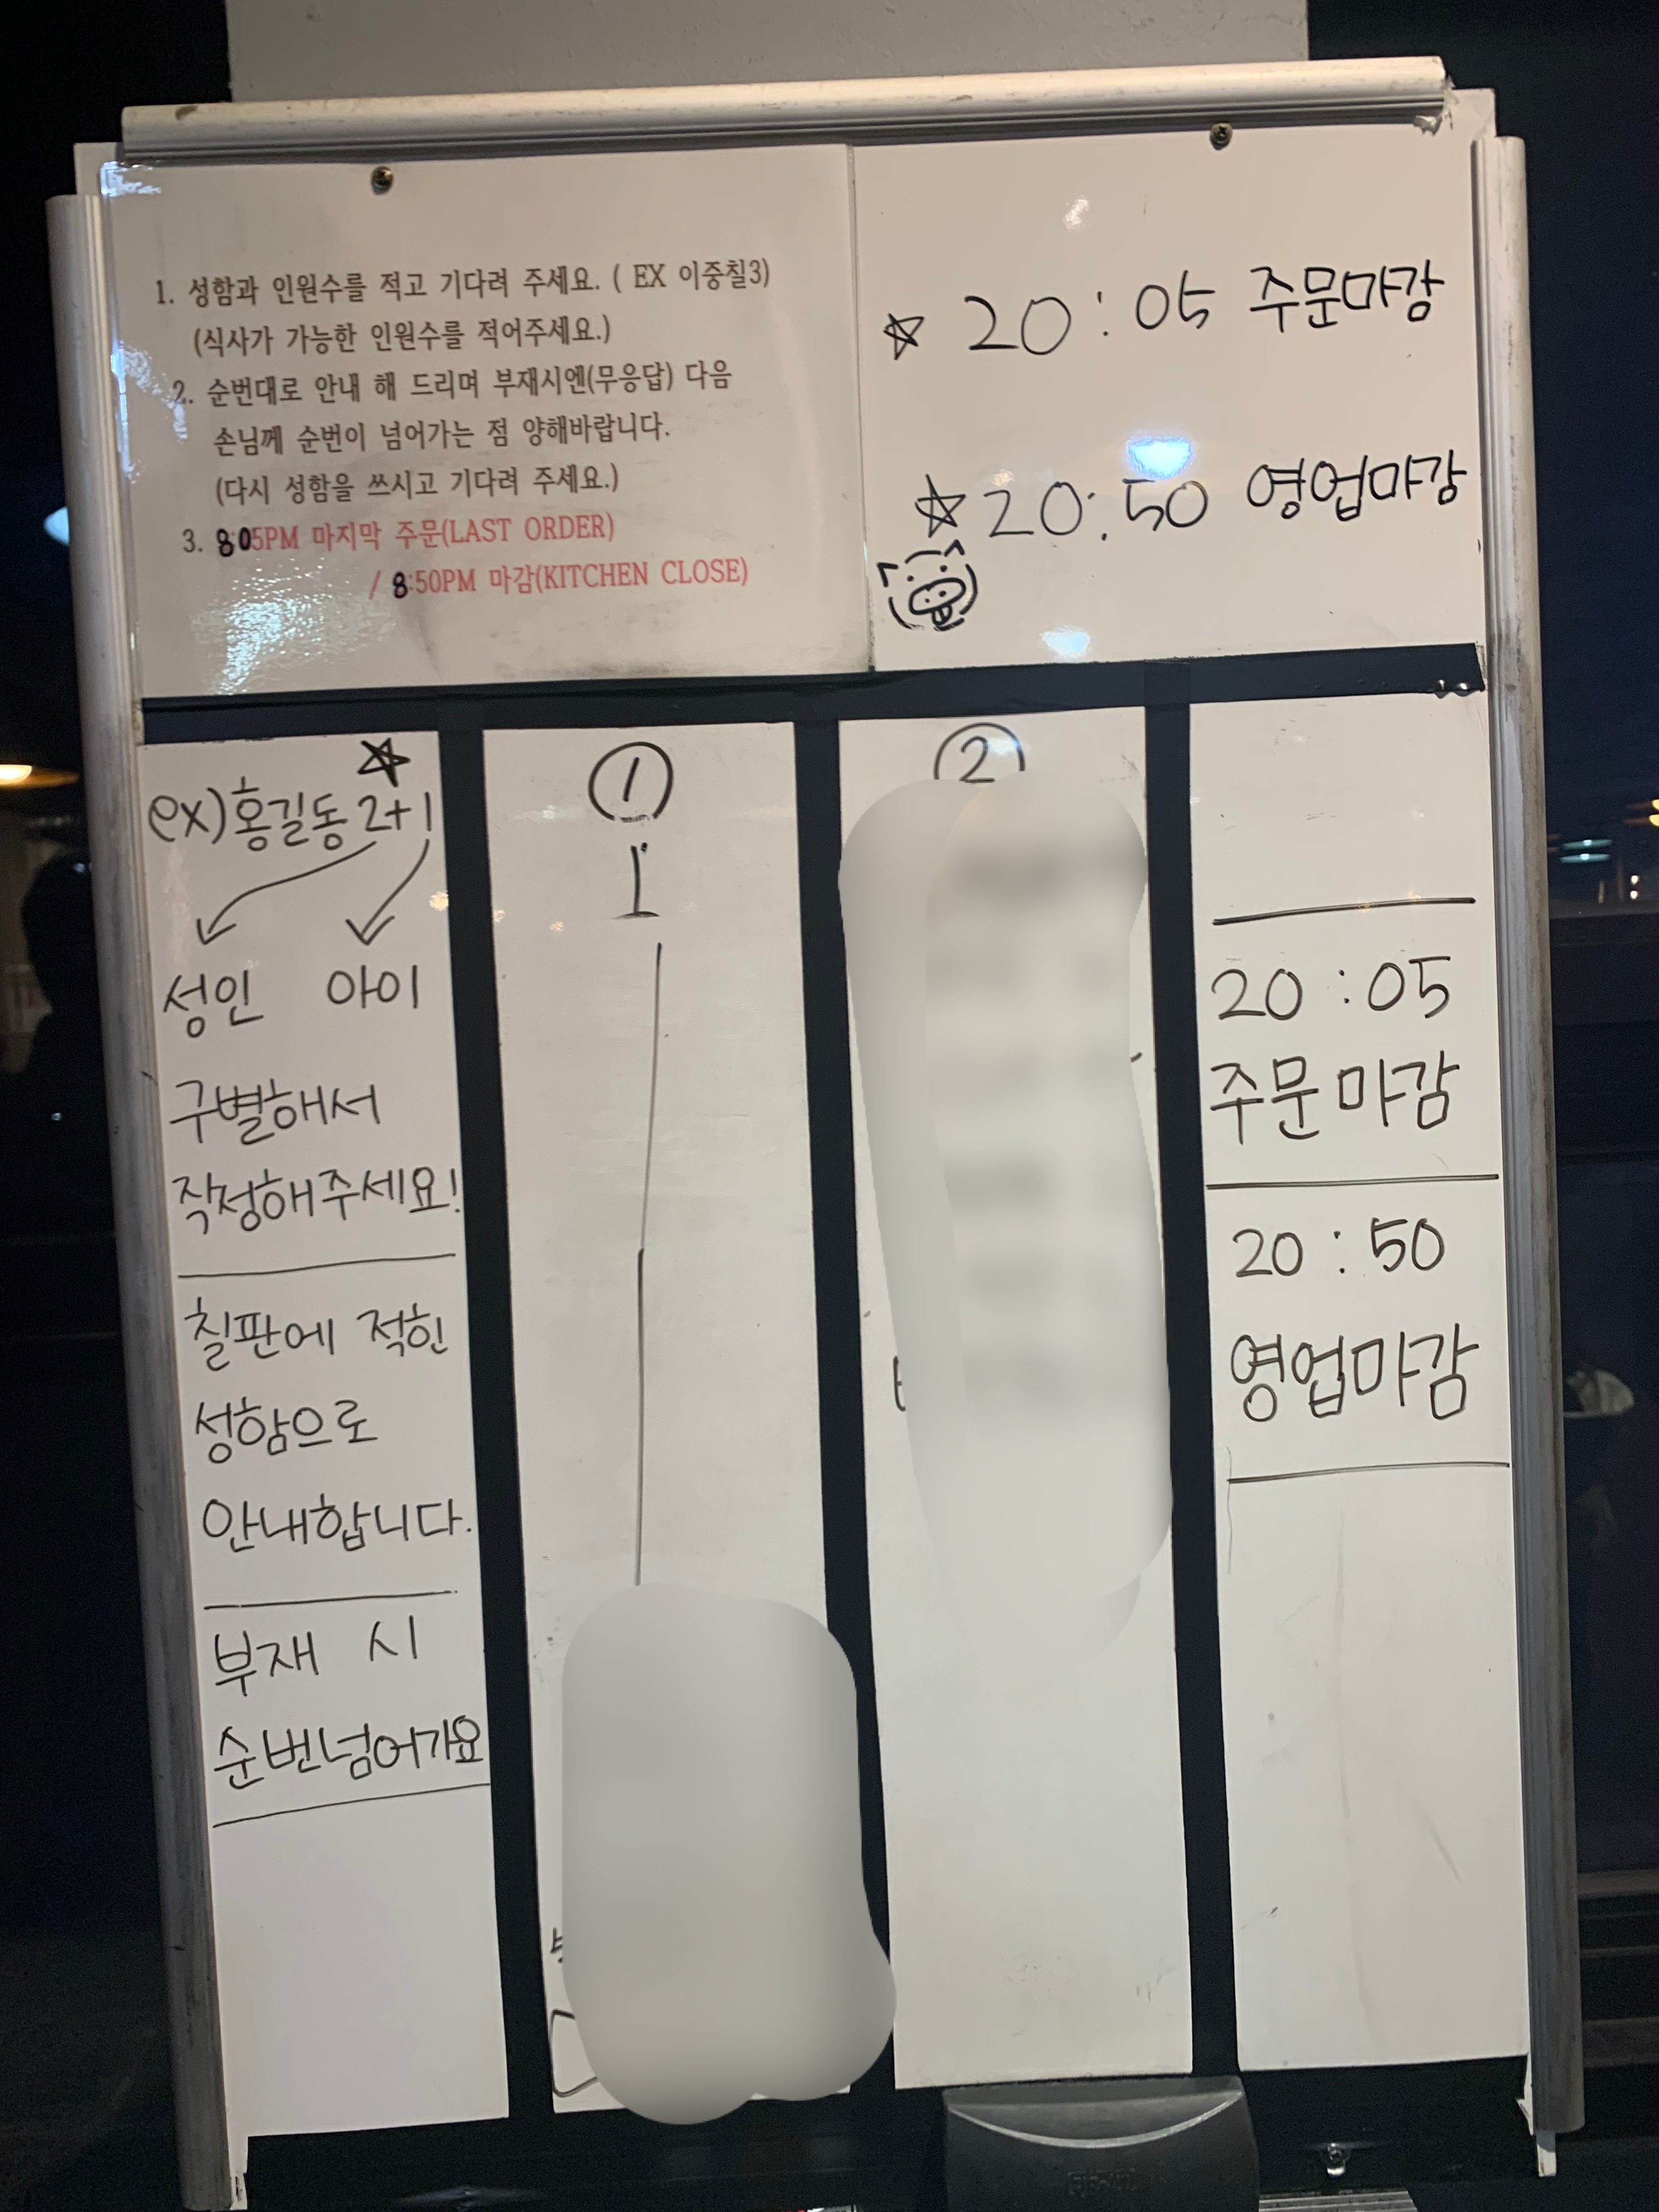 1. 성함과 인원수를 적고 기다려 주세요. ( EX 이중칠3)
(식사가 가능한 인원수를 적어주세요.)
2. 순번대로 안내 해 드리며 부재시엔(무응답) 다음
손님께 순번이 넘어가는 점 양해바랍니다.
(다시 성함을 쓰시고 기다려 주세요.)
3. 8:05PM 마지막 주문(LAST ORDER)
/ 8:50PM 마감(KITCHEN CLOSE)
☆ 20:05 주문마감
☆ 20:50 영업마감
☆
ex)홍길동 2+1
성인 아이
구별해서
작정해주세요!
칠판에 적힌
성함으로
안내합니다.
부재 시
순번넘어가요
①
②
20:05
주문마감
20:50
영업마감